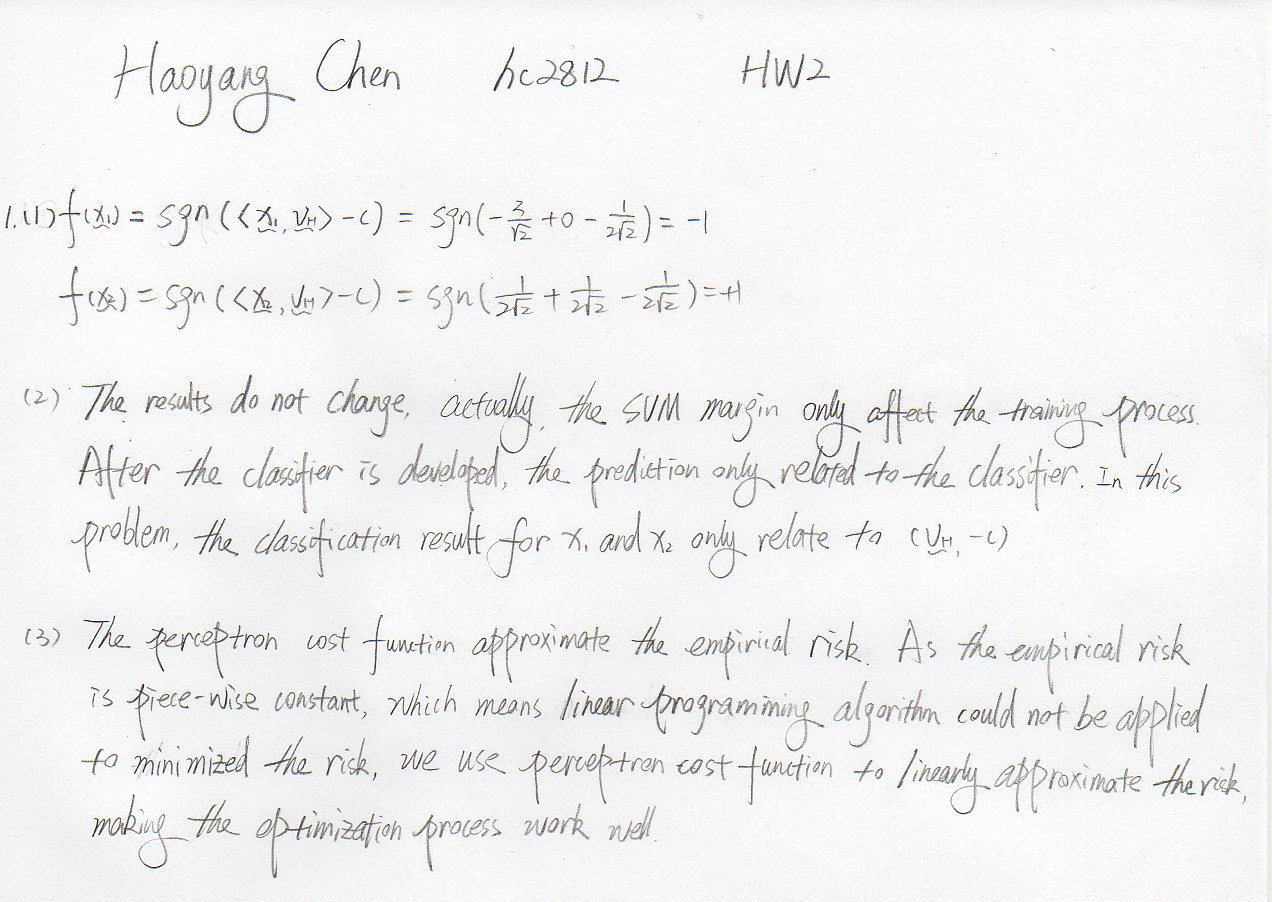 Haoyang Chen hc2812 HW2
1.(1) f(x₁) = sgn(<x₁, v_H> - c) = sgn(-3/√2 + 0 - 1/(2√2)) = -1
f(x₂) = sgn(<x₂, v_H> - c) = sgn(1/(2√2) + 1/(2√2) - 1/(2√2)) = +1
(2) The results do not change, actually, the SVM margin only affect the training process.
After the classifier is developed, the prediction only related to the classifier. In this
problem, the classification result for x₁ and x₂ only relate to (v_H, -c)
(3) The perceptron cost function approximate the empirical risk. As the empirical risk
is piece-wise constant, which means linear programming algorithm could not be applied
to minimized the risk, we use perceptron cost function to linearly approximate the risk,
making the optimization process work well.